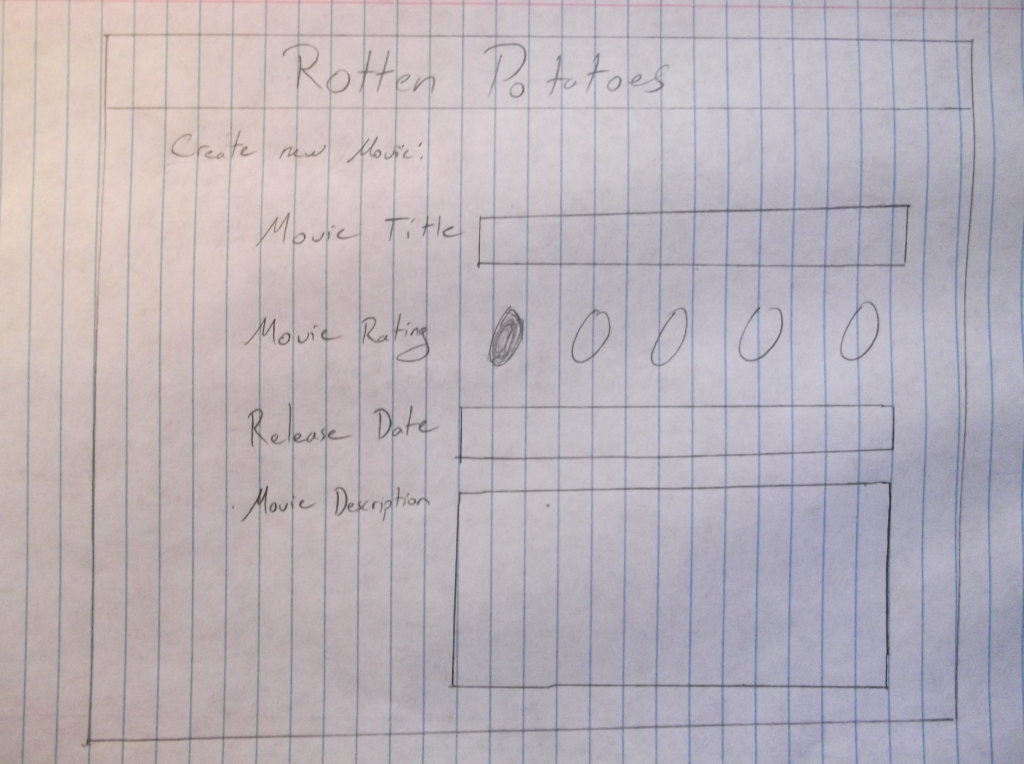 Rotten Potatoes
Create new Movie:
Movie Title
Movie Rating
Release Date
Movie Description